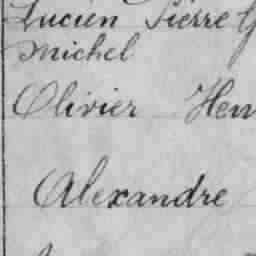 Lucien Pierre G
Michel
Olivier Hen
Alexandre